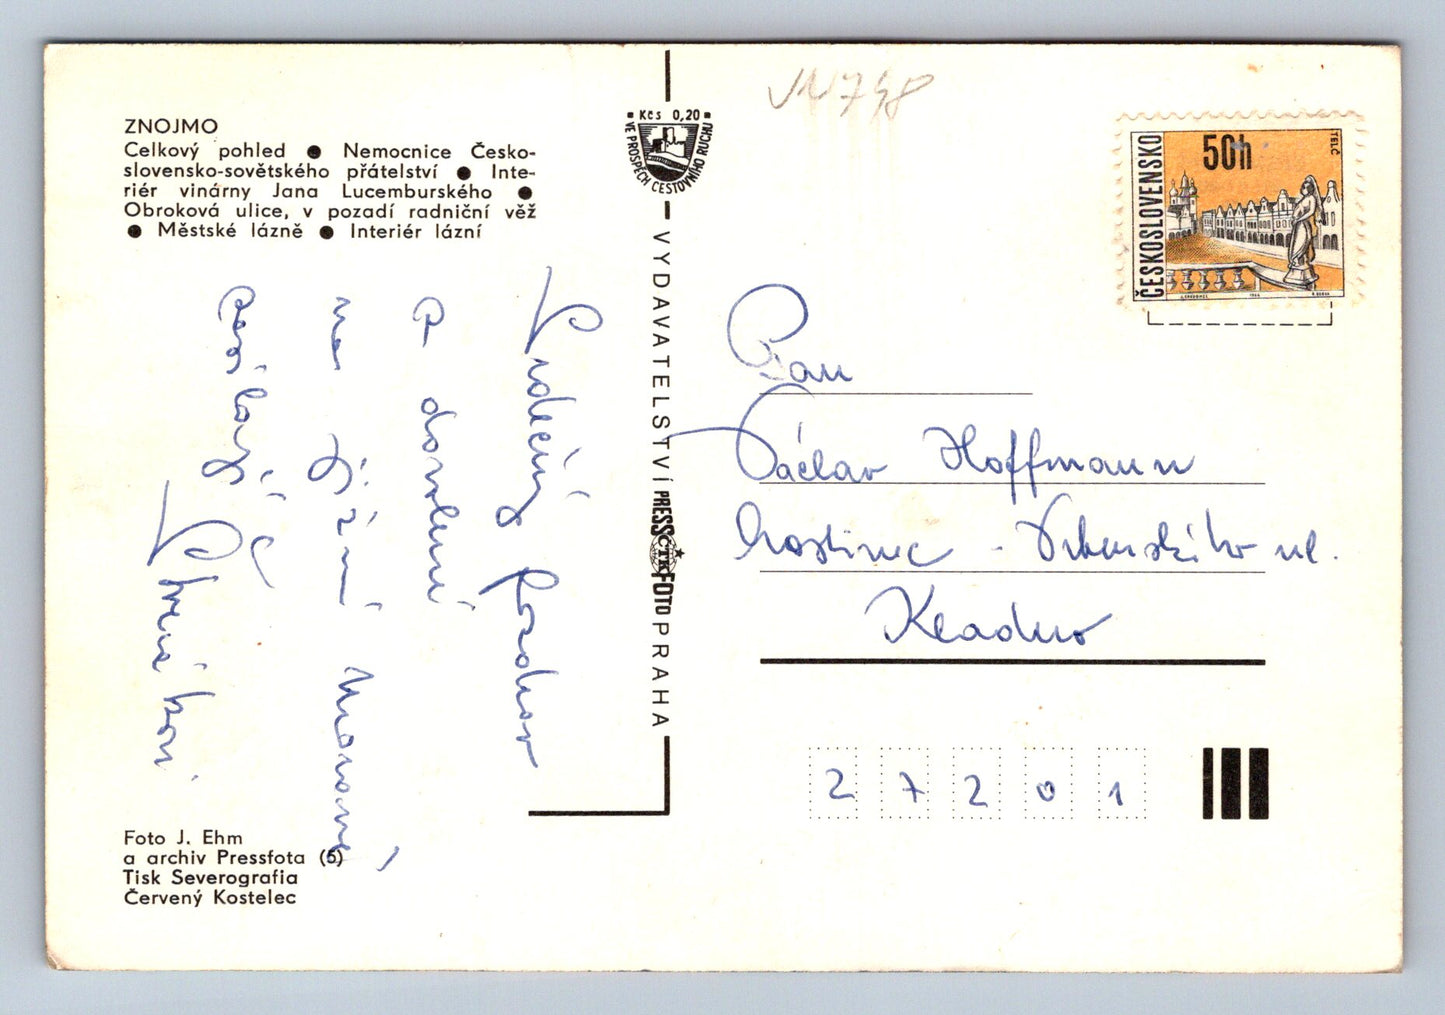 ZNOJMO
Celkový pohled ● Nemocnice Česko-
slovensko-sovětského přátelství ● Inte-
riér vinárny Jana Lucemburského ●
Obroková ulice, v pozadí radniční věž
● Městské lázně ● Interiér lázní
Srdečný pozdrav
z dovolené
na jižní Moravě,
posílají
Foto J. Ehm
a archiv Pressfota (5)
Tisk Severografia
Červený Kostelec
Kčs 0,20
VE PROSPĚCH CESTOVNÍHO RUCHU
VYDAVATELSTVÍ PRESSFOTO PRAHA
ČTK
ČESKOSLOVENSKO
50h
TELČ
1966
Pan
Václav Hoffmann
hostinec - Vrbenského ul.
Kladno
27201